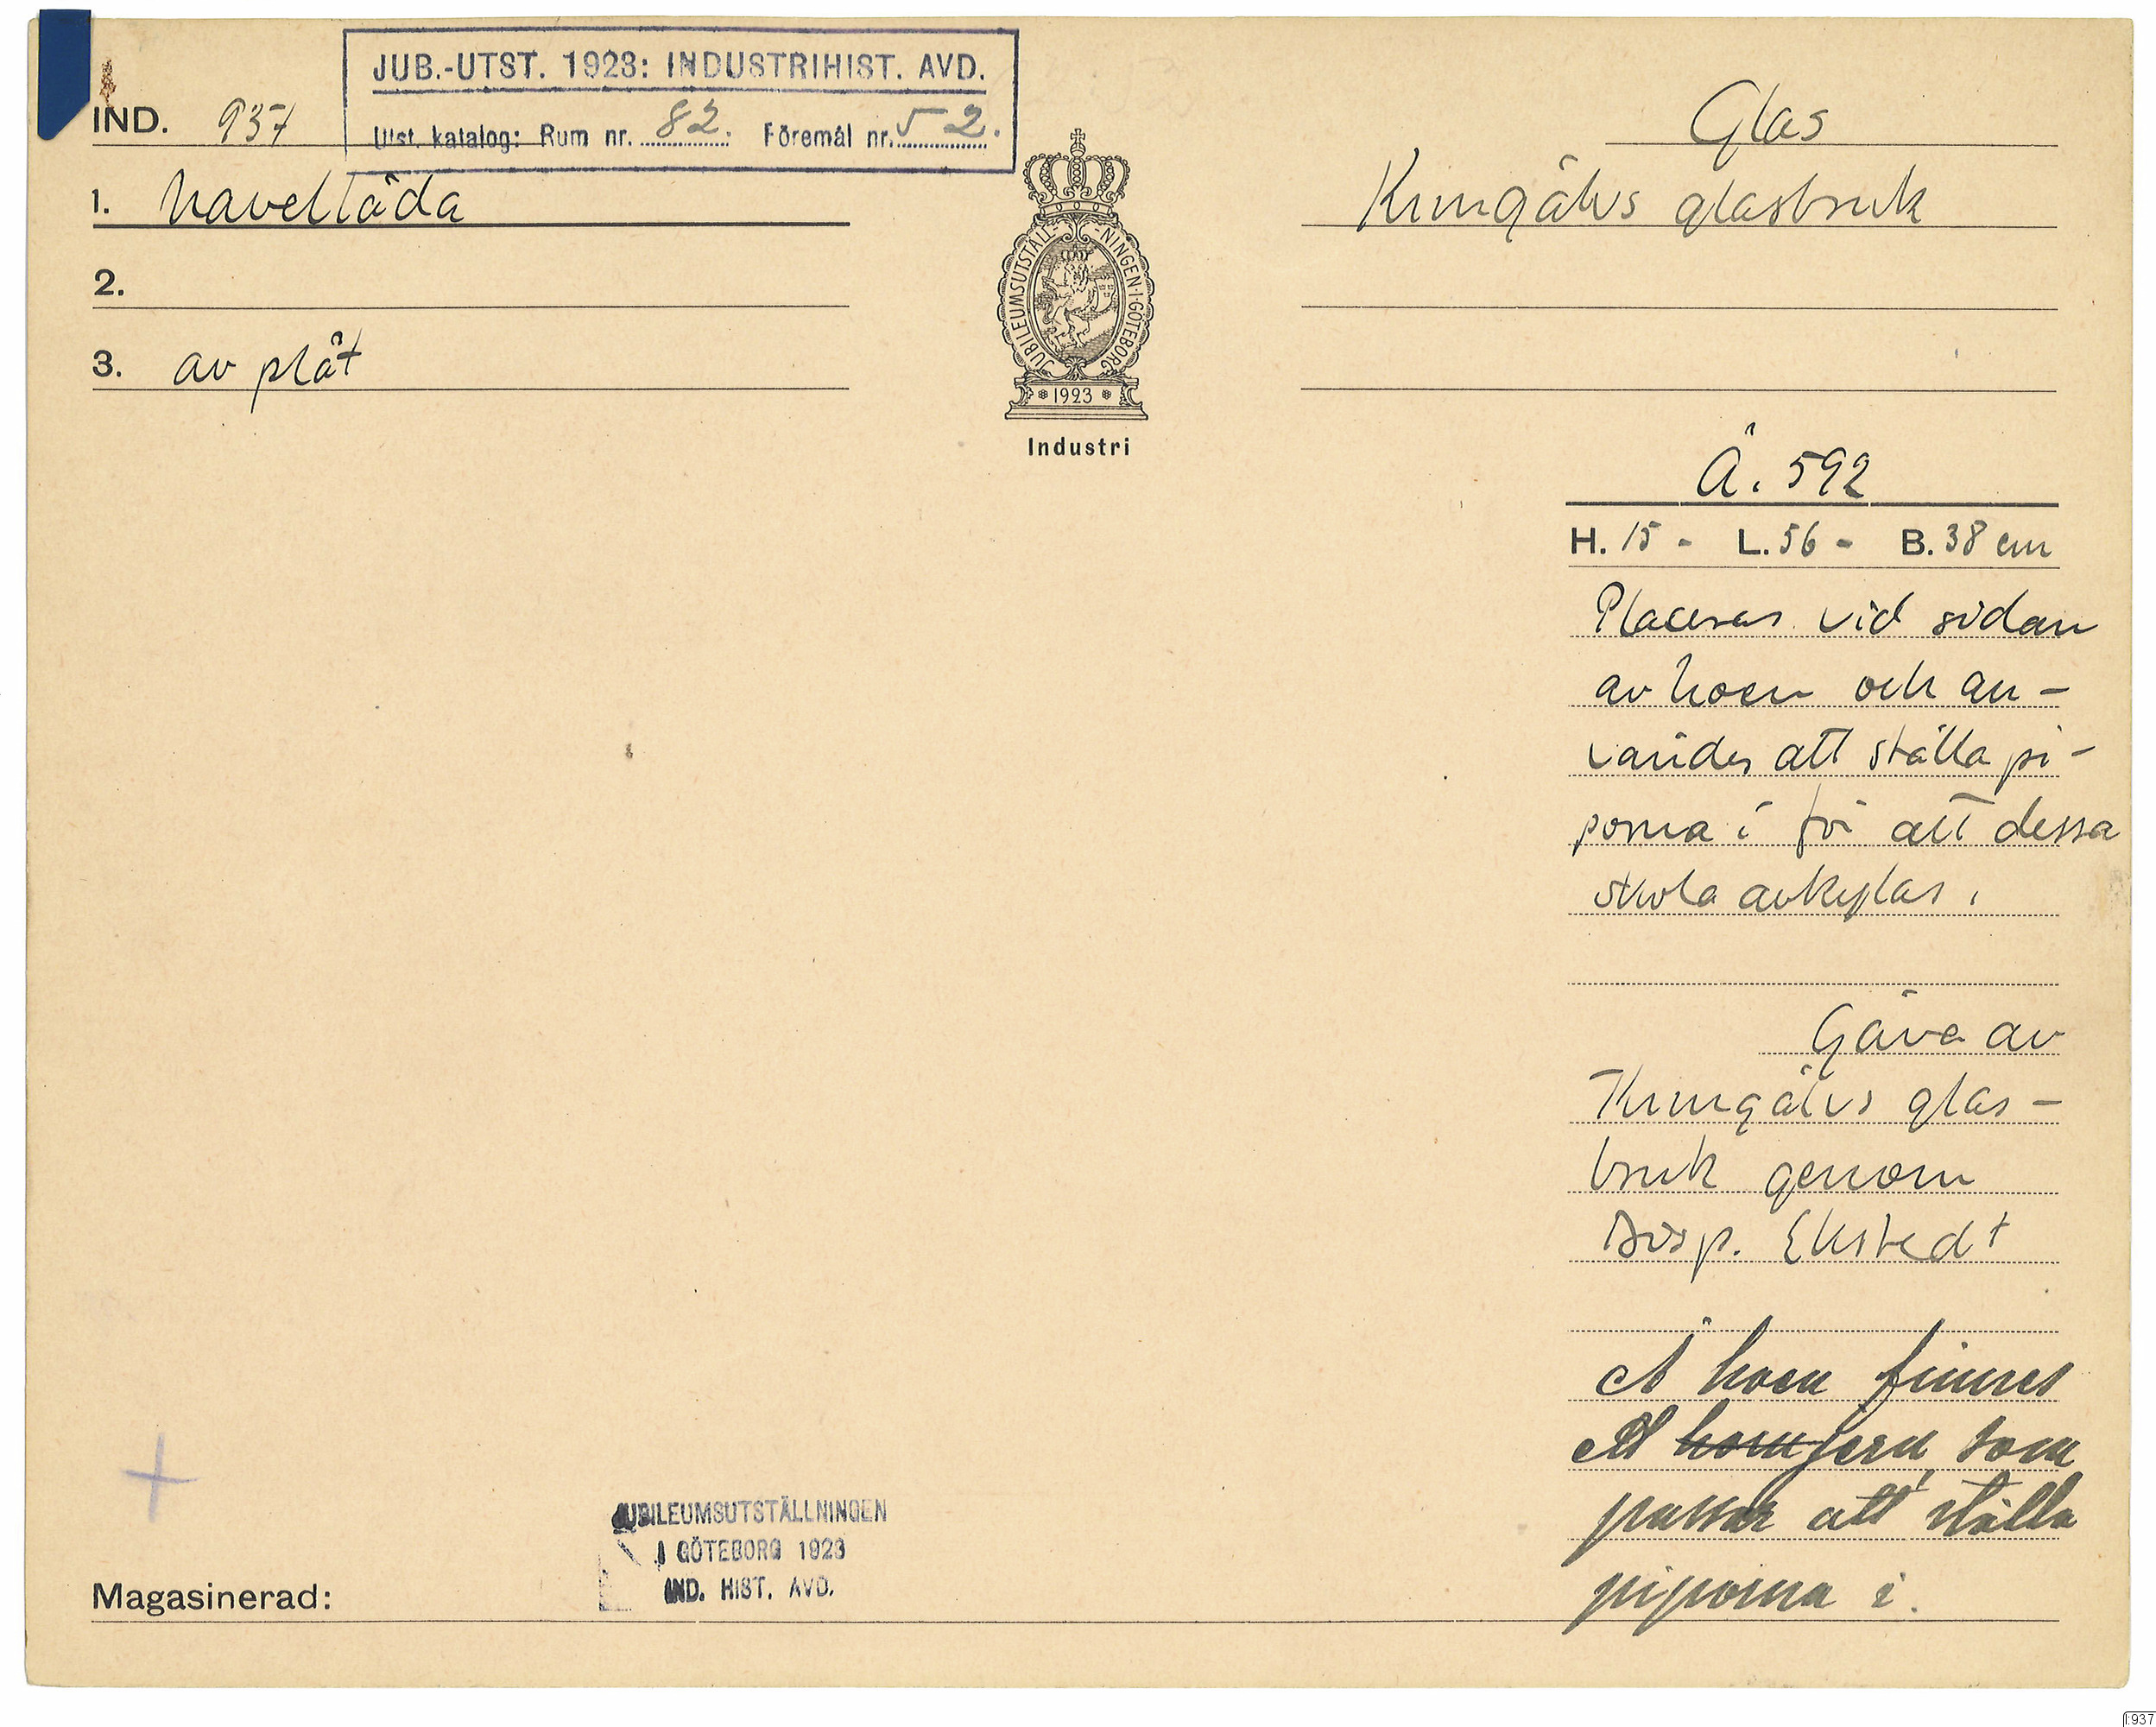 JUB.-UTST. 1923: INDUSTRIHIST. AVD.
Utst. katalog: Rum nr. 82. Föremål nr. 52.
IND. 937
1. navellåda
2.
3. av plåt
JUBILEUMSUTSTÄLLNINGEN·I·GÖTEBORG
* 1923 *
Industri
Glas
Kungälvs glasbruk
Å. 592
H. 15 - L. 56 - B. 38 cm
Placeras vid sidan
av hoen och an-
vändes att ställa pi-
porna i för att dessa
skola avkylas.
Gåva av
Kungälvs glas-
bruk genom
Disp. Ekstedt
Å hoen finnes
ett järn, som
passar att ställa
piporna i.
JUBILEUMSUTSTÄLLNINGEN
I GÖTEBORG 1923
IND. HIST. AVD.
Magasinerad:
I:937